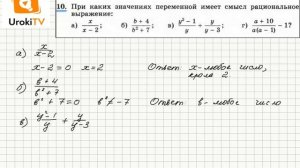 UrokiTV
10. При каких значениях переменной имеет смысл рациональное
выражение:
а) x/(x − 2); б) (b + 4)/(b² + 7); в) (y² − 1)/y + y/(y − 3); г) (a + 10)/(a(a − 1)) − 1?
а) x/(x−2)
x−2=0 x=2 Ответ x-любое число,
кроме 2
б) (b+4)/(b²+7)
b²+7=0 b²≠−7 Ответ b-любое число
в) (y²−1)/y + y/(y−3)